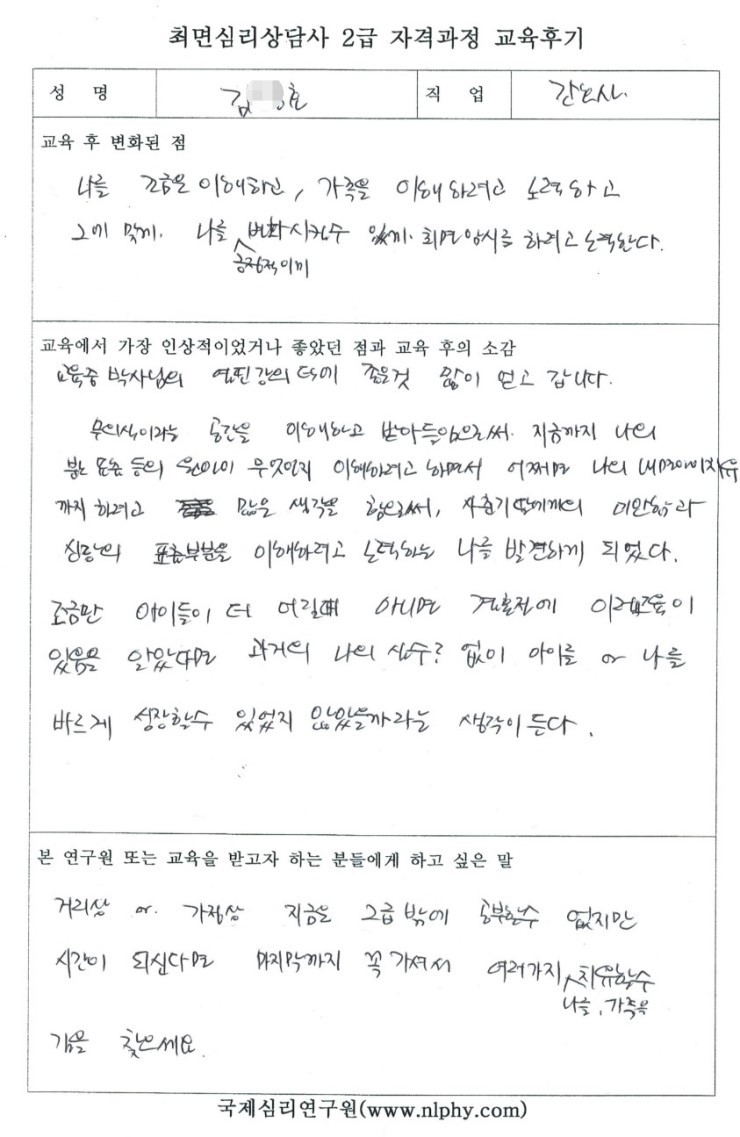 최면심리상담사 2급 자격과정 교육후기
성 명 김 호 직 업 간호사.
교육 후 변화된 점
나를 조금은 이해하고, 가족을 이해하려고 노력하고
그에 맞게. 나를 변화시킬수 있게. 최면암시를 하려고 노력한다.
긍정적이미
교육에서 가장 인상적이었거나 좋았던 점과 교육 후의 소감
교육중 박사님의 열띤강의 덕에 좋은것 많이 얻고 갑니다.
무의식이라는 공간을 이해하고 받아들임으로써. 지금까지 나의
등의 원인이 무엇인지 이해하려고 하면서 어쩌면 나의 내면아이치유
까지 하려고 많은 생각을 함으로써, 사춘기 미안함과
표출부분을 이해하려고 노력하는 나를 발견하게 되었다.
조금만 아이들이 더 어릴때 아니면 결혼전에 이런교육이
있음을 알았다면 과거의 나의 실수? 없이 아이를 or 나를
바르게 성장할수 있었지 않았을까라는 생각이 든다.
본 연구원 또는 교육을 받고자 하는 분들에게 하고 싶은 말
거리상 or. 가정상 지금은 2급 밖에 공부할수 없지만
시간이 되신다면 마지막까지 꼭 가셔서 여러가지 치유할수
나를, 가족을
길을 찾으세요.
국제심리연구원(www.nlphy.com)